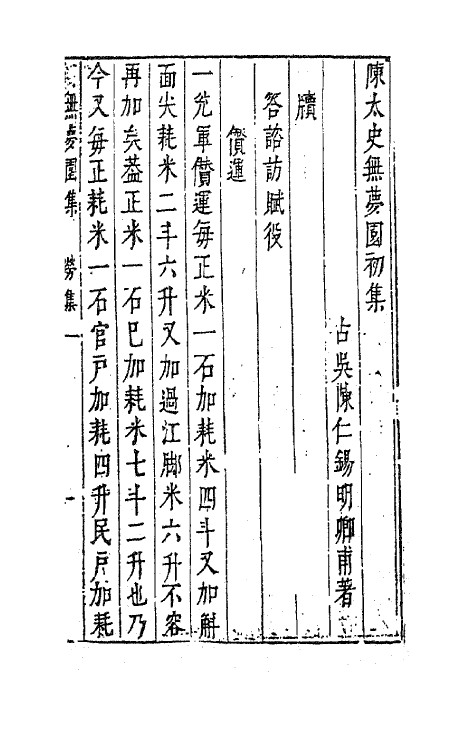 陳太史無夢園初集
古吳陳仁錫明卿甫著
牘
答諮訪賦役
儹運
一兌軍儹運每正米一石加耗米四斗又加斛
面尖耗米二斗六升又加過江脚米六升不容
再加矣葢正米一石已加耗米七斗二升也乃
今又每正耗米一石官戶加耗四升民戶加耗
無夢園集 勞集一 一